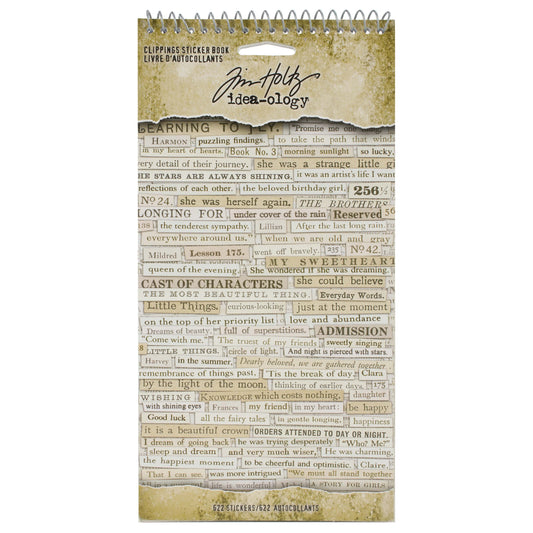 CLIPPINGS STICKER BOOK
LIVRE D'AUTOCOLLANTS
Tim Holtz
idea-ology
LEARNING TO FLY. "Promise me one
HARMON puzzling findings. to take the path that winds
in my heart of hearts. Book No. 3. morning sunlight so lucky.
very detail of their journey. she was a strange little gi
HE STARS ARE ALWAYS SHINING. it was an artist's life I want
reflections of each other. the beloved birthday girl, 256½
No 24. she was herself again. THE BROTHERS
LONGING FOR under cover of the rain Reserved 56
38 the tenderest sympathy. Lillian After the last long rain.
everywhere around us." when we are old and gray
Mildred Lesson 175. went off bravely. 235 No 42.
MY SWEETHEART
queen of the evening. She wondered if she was dreaming.
CAST OF CHARACTERS she could believe
THE MOST BEAUTIFUL THING. Everyday Words.
Little Things. curious-looking just at the moment
on the top of her priority list love and abundance
Dreams of beauty. full of superstitions. ADMISSION
"Come with me." The trust of my friends sweetly singing
LITTLE THINGS. circle of light. And night is pierced with stars.
Harvey in the summer, Dearly beloved, we are gathered together
remembrance of things past. 'Tis the break of day. Clara
by the light of the moon. thinking of earlier days. 175
WISHING KNOWLEDGE which costs nothing. daughter
with shining eyes Frances my friend in my heart: be happy
Good luck all the fairy tales in gentle longing. happiness
it is a beautiful crown ORDERS ATTENDED TO DAY OR NIGHT.
I dream of going back he was trying desperately "Who? Me?"
sleep and dream and very much wiser, He was charming.
the happiest moment to be cheerful and optimistic. Claire.
That I can see. was more intrigued "We must all stand together
life is wonderful A STORY FOR GIRLS
622 STICKERS/622 AUTOCOLLANTS